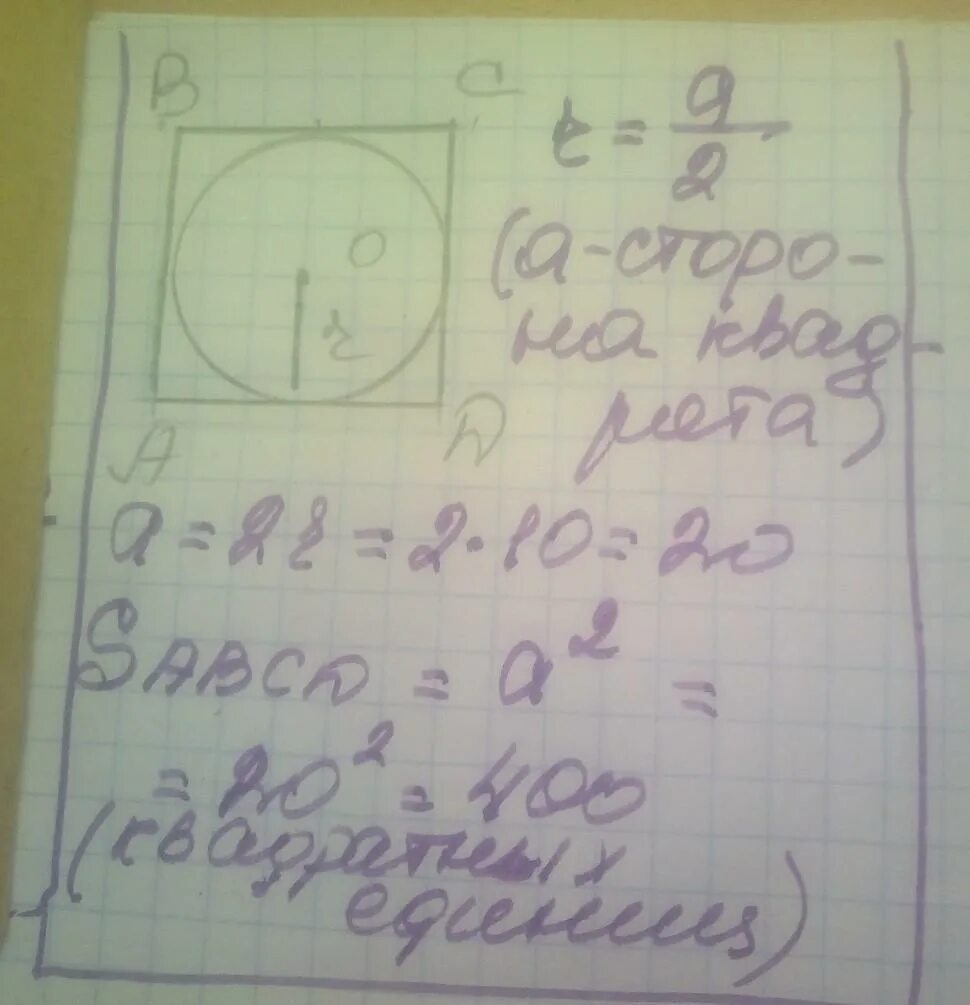 B C
O
r
A D
r = a/2
(a - сторо-
на квад-
рата)
a = 2r = 2·10 = 20
SABCD = a² =
= 20² = 400
(квадратных
единиц)